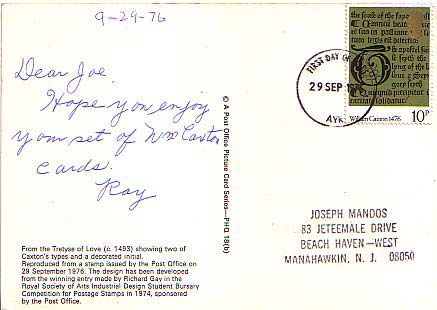 9-29-76
Dear Joe,
Hope you enjoy
your set of Wm Caxton
Cards.
Ray
From the Tretyse of Love (c. 1493) showing two of
Caxton's types and a decorated initial.
Reproduced from a stamp issued by the Post Office on
29 September 1976. The design has been developed
from the winning entry made by Richard Gay in the
Royal Society of Arts Industrial Design Student Bursary
Competition for Postage Stamps in 1974, sponsored
by the Post Office.
© A Post Office Picture Card Series—PHQ 18(b)
FIRST DAY OF
29 SEP
AYR
William Caxton 1476 10P
JOSEPH MANDOS
83 JETEEMALE DRIVE
BEACH HAVEN—WEST
MANAHAWKIN, N. J. 08050